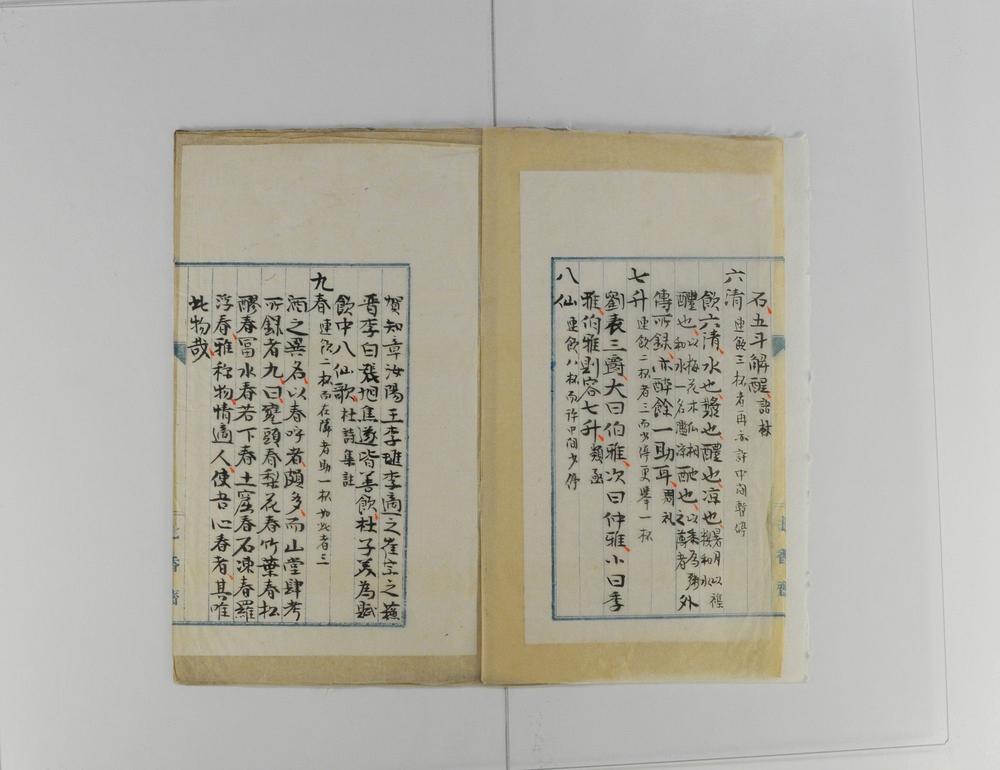 石五斗解酲語林
六清連飲三杯者再不許中間暫停
飲六清水也漿也醴也涼也
醴也以梅花木瓜相和水一名濫涼酏也以黍為粥
傳所錄亦醉餘一助耳周礼
七升連飲二杯者三而少停更舉一杯
劉表三爵大曰伯雅次曰仲雅小曰季
雅伯雅則容七升類函
八仙連飲八杯而許中間少停
賀知章汝陽王李璡李適之崔宗之蘓
晋李白張旭焦遂皆善飲杜子美為賦
飲中八仙歌杜詩集註
九春連飲二杯而在隣者助一杯如此者三
酒之異名以春呼者頗多而山堂肆考
所錄者九曰甕頭春梨花春竹葉春松
醪春富水春若下春土窟春石凍春羅
浮春雅称物情適人使吾心春者其唯
此物哉
七香齋
七香齋